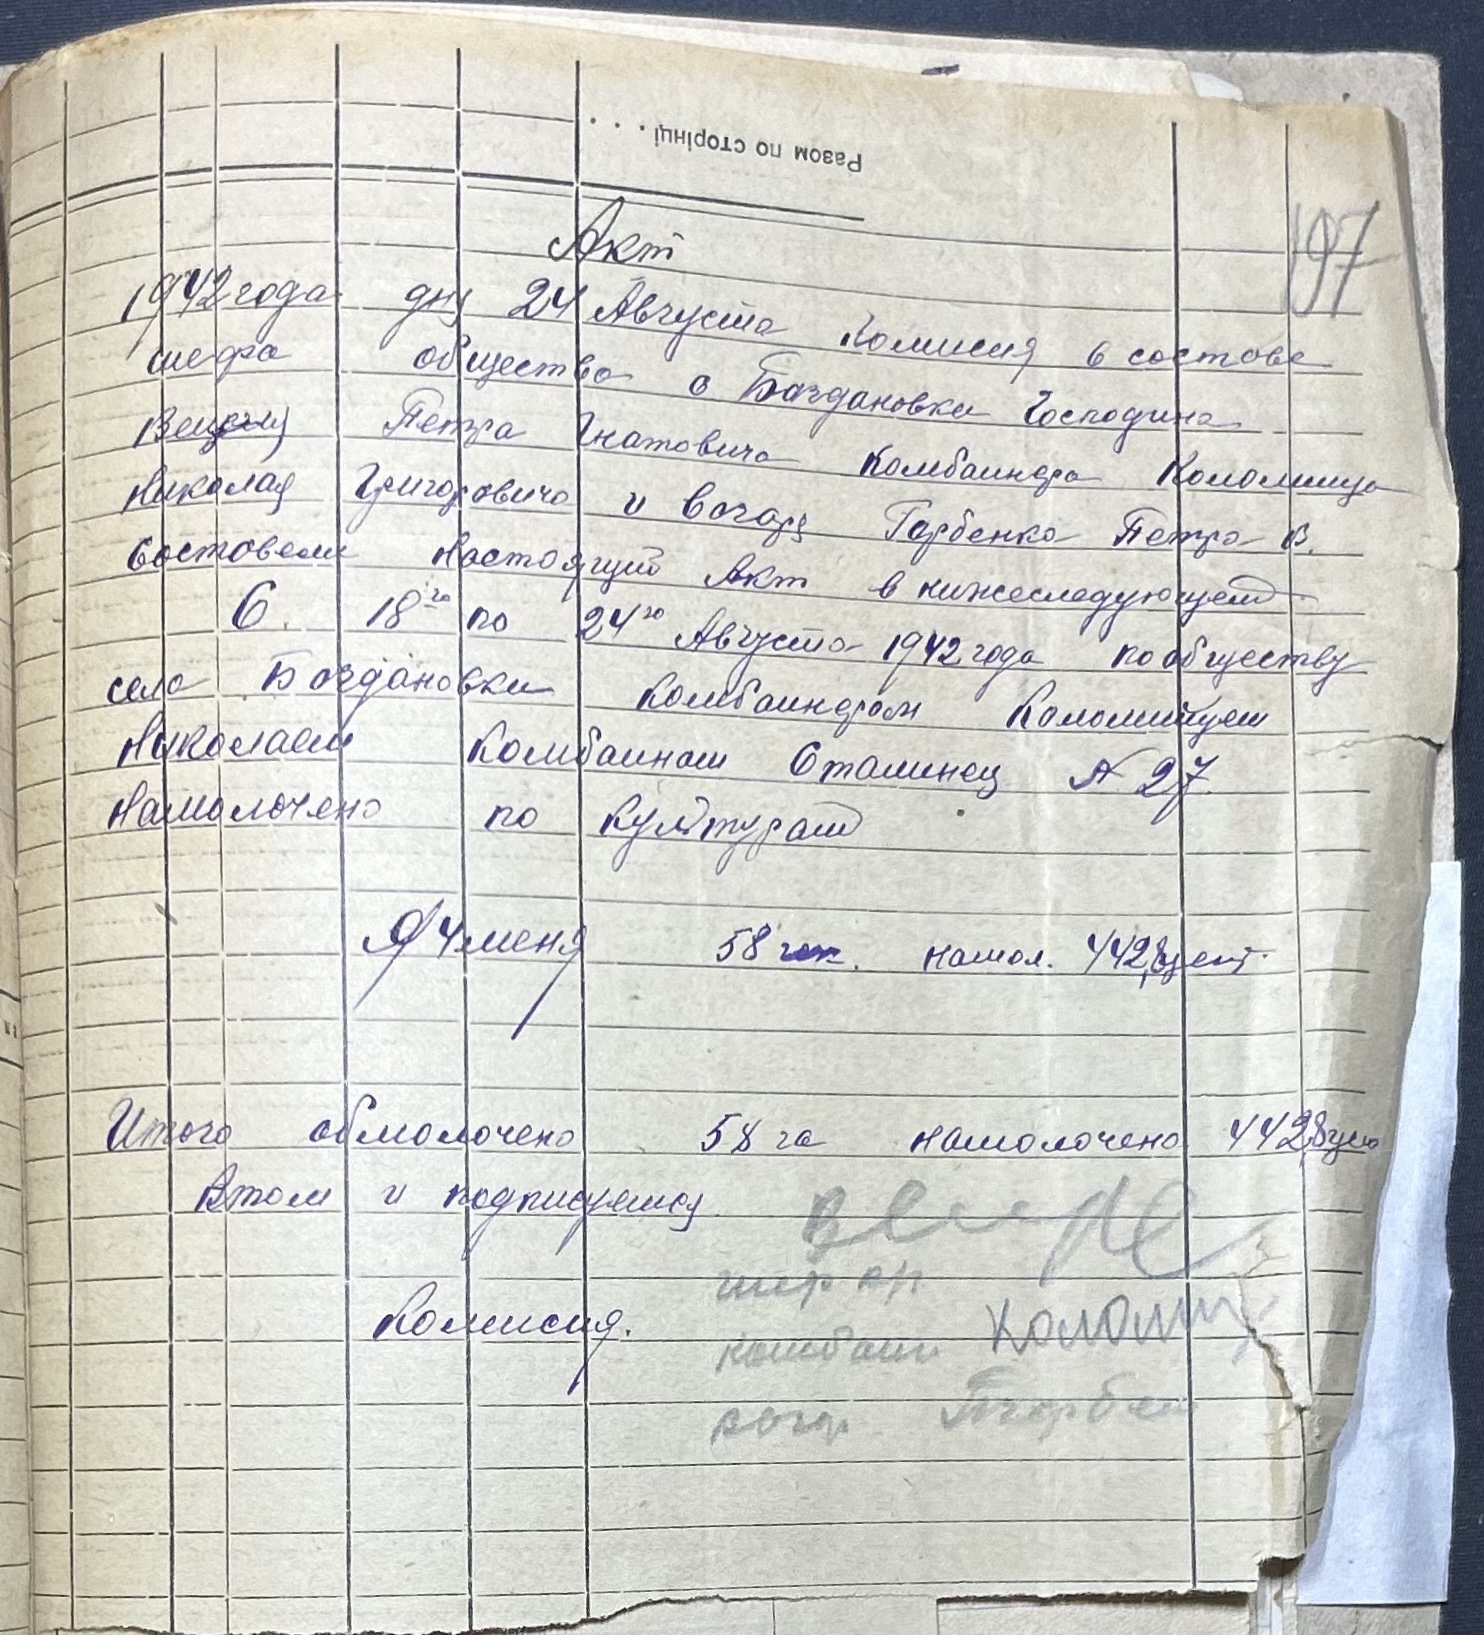 Разом по сторінці . . . .
197
Акт
1942 года дня 24 Августа Комисия в составе
шефа общества с Богдановки Господина
Петра Гнатовича комбаинера Коломийца
Николая Григоровича и вагаря Гарбенка Петра В.
составели настоящий Акт в нижеследующем
С. 18го по 24го Августа 1942 года по обществу
села Богдановки комбаинером Коломийцем
Николаем комбаинам Сталинец № 27.
намолочено по культурам
Ячменя 58 гек. намол. 442,8 цент.
Итого обмолочено 58 га намолочено 442,8 цен
В том и подписуемся
шеф
Комисия.
комбаин Коломиц
вагар Гарбен